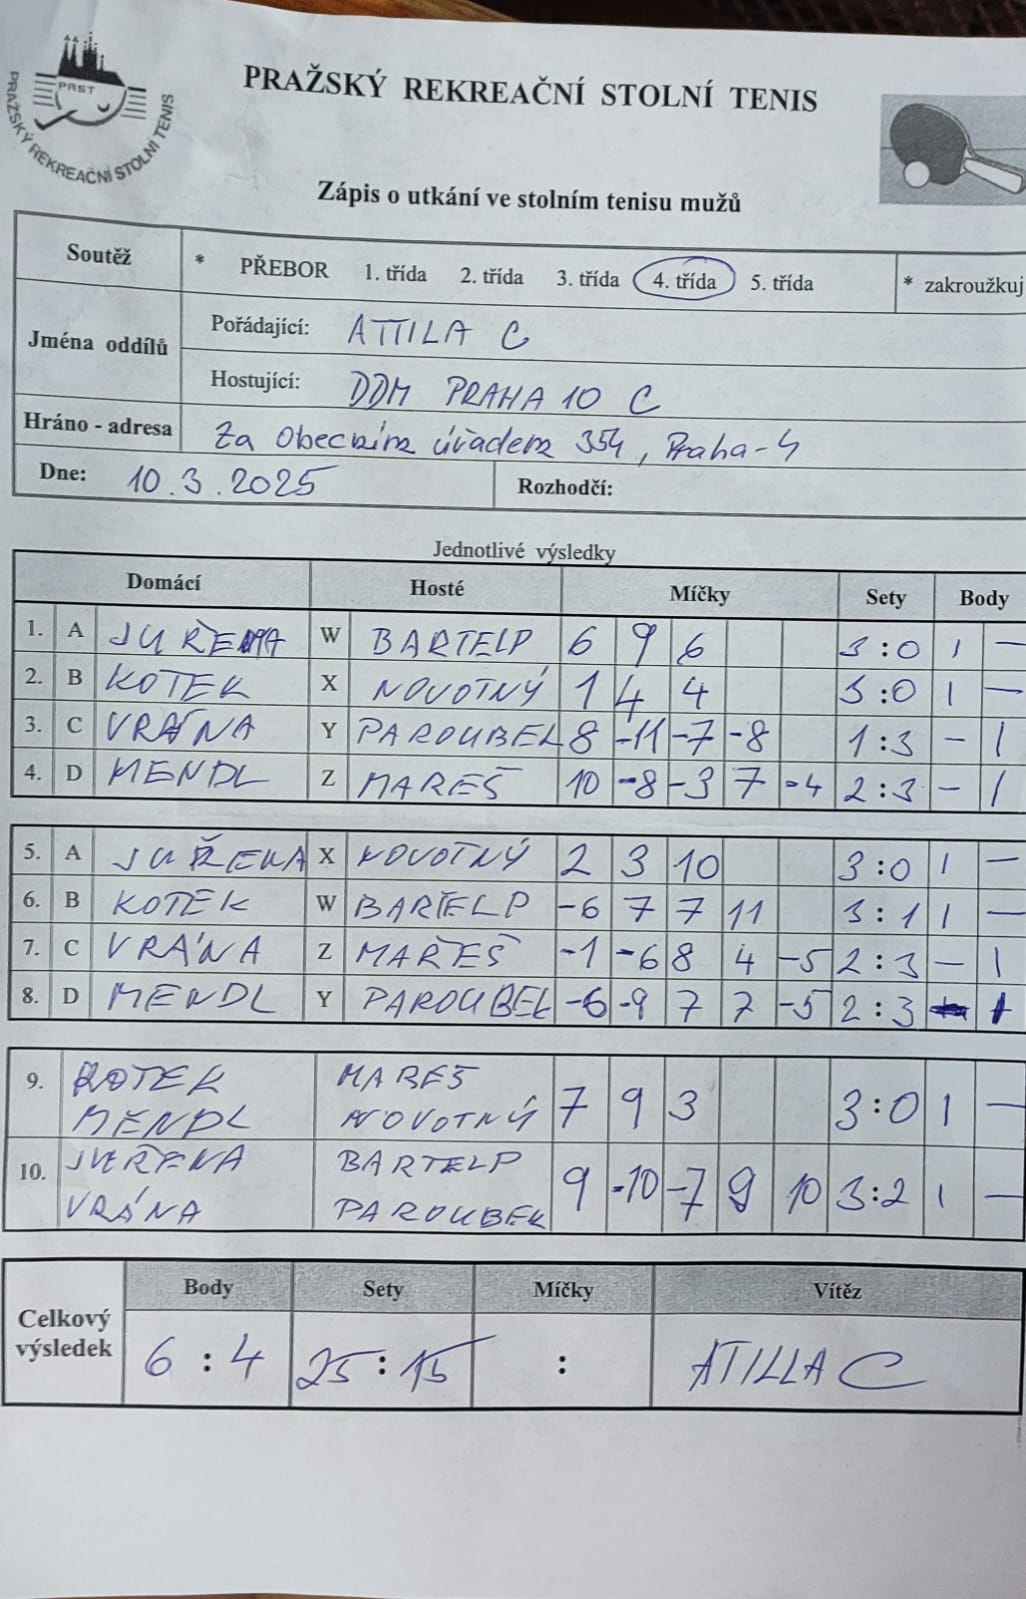 PRAŽSKÝ REKREAČNÍ STOLNÍ TENIS
PRST
PRAŽSKÝ REKREAČNÍ STOLNÍ TENIS
Zápis o utkání ve stolním tenisu mužů
Soutěž * PŘEBOR 1. třída 2. třída 3. třída 4. třída 5. třída * zakroužkuj
Jména oddílů
Pořádající: ATTILA C
Hostující: DDM PRAHA 10 C
Hráno - adresa Za Obecním úřadem 354, Praha-4
Dne: 10.3.2025 Rozhodčí:
Jednotlivé výsledky
Domácí Hosté Míčky Sety Body
1. A JUŘENA W BARTELP 6 9 6 3:0 1 —
2. B KOTEK X NOVOTNÝ 1 4 4 3:0 1 —
3. C VRÁNA Y PAROUBEK 8 -11 -7 -8 1:3 — 1
4. D MENDL Z MAREŠ 10 -8 -3 7 -4 2:3 — 1
5. A JUŘENA X NOVOTNÝ 2 3 10 3:0 1 —
6. B KOTEK W BARTELP -6 7 7 11 3:1 1 —
7. C VRÁNA Z MAREŠ -1 -6 8 4 -5 2:3 — 1
8. D MENDL Y PAROUBEK -6 -9 7 7 -5 2:3 — 1
9. KOTEK MAREŠ 7 9 3 3:0 1 —
MENDL NOVOTNÝ
10. JUŘENA BARTELP 9 -10 -7 9 10 3:2 1 —
VRÁNA PAROUBEK
Celkový výsledek
Body Sety Míčky Vítěz
6 : 4 25 : 15 : ATILLA C